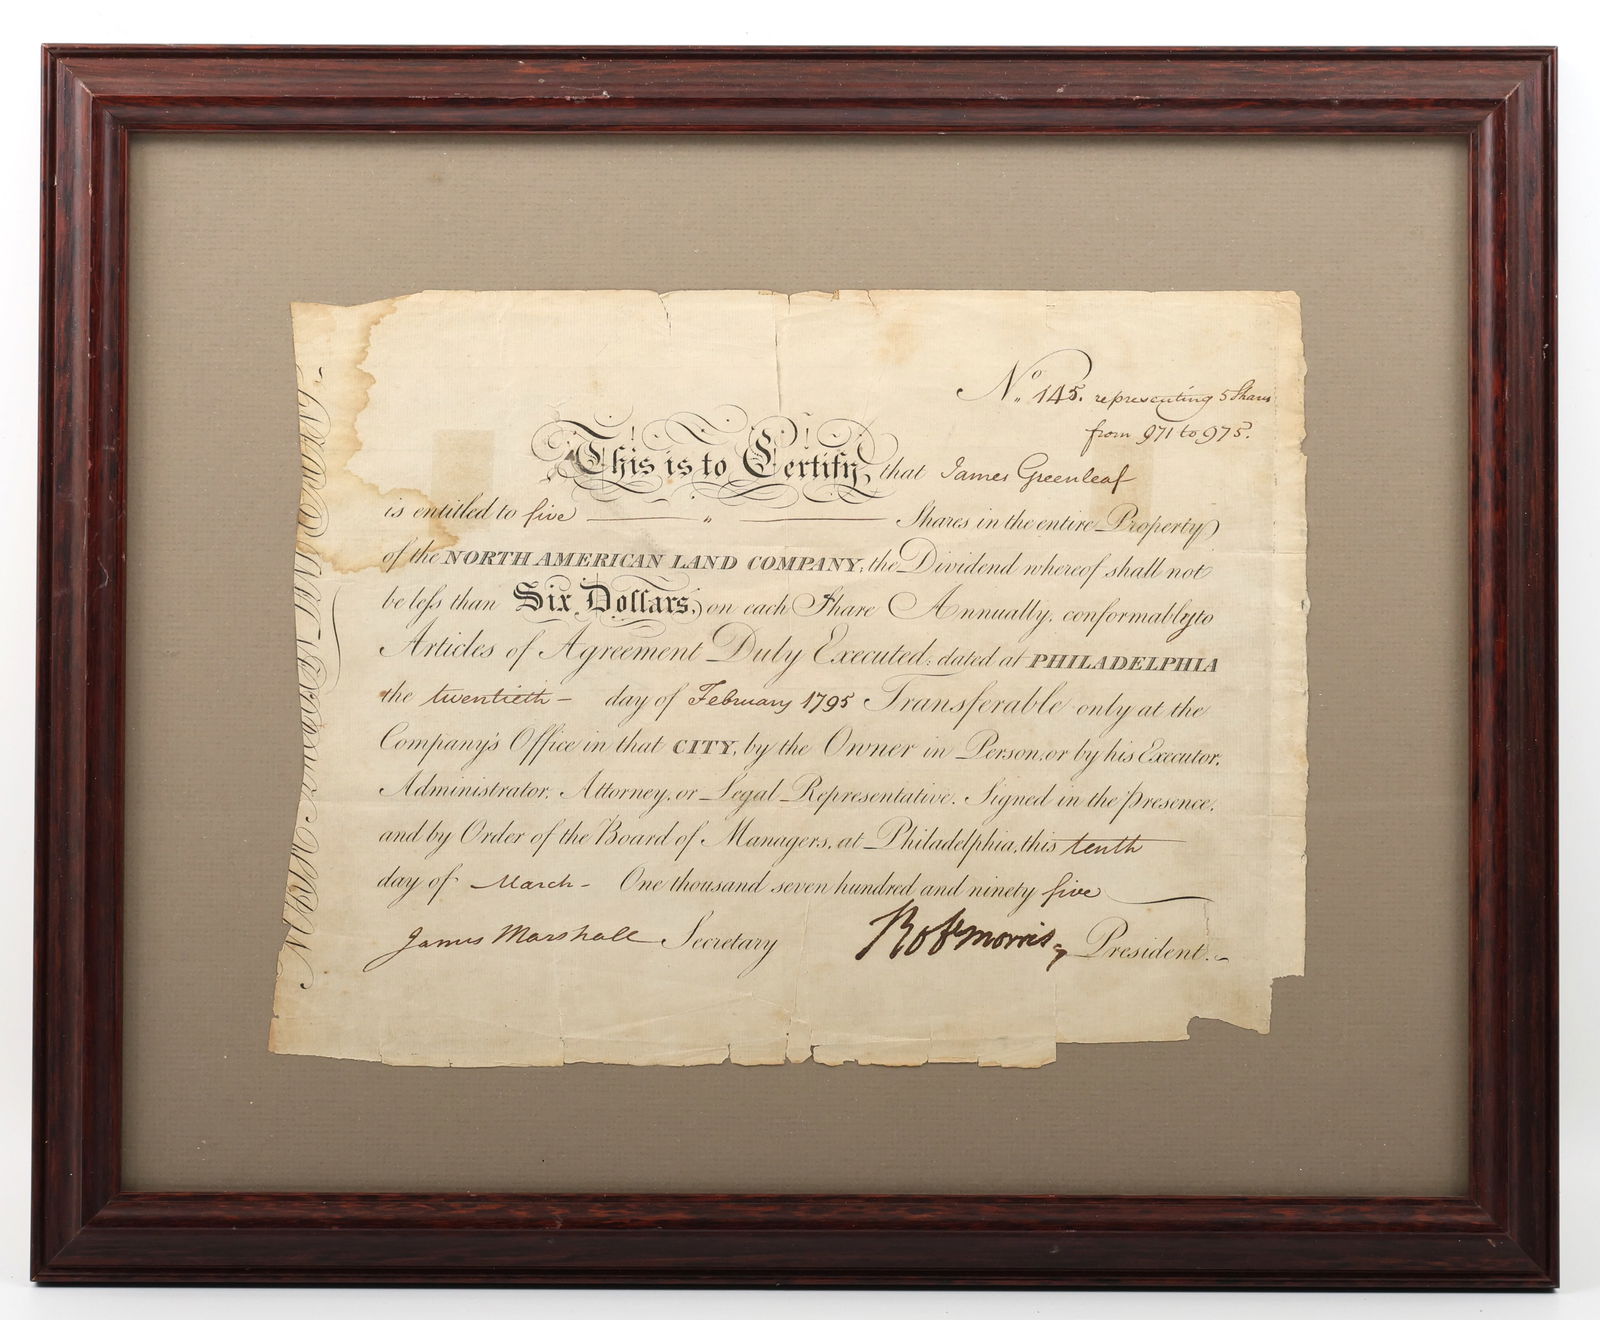 No. 145. representing 5 Shares
from 971 to 975.
This is to Certify, that James Greenleaf
is entitled to five Shares in the entire Property
of the NORTH AMERICAN LAND COMPANY; the Dividend whereof shall not
be less than Six Dollars, on each Share Annually, conformably to
Articles of Agreement Duly Executed; dated at PHILADELPHIA
the twentieth - day of February 1795 Transferable only at the
Company's Office in that CITY, by the Owner in Person, or by his Executor,
Administrator, Attorney, or Legal Representative. Signed in the presence,
and by Order of the Board of Managers, at Philadelphia, this tenth
day of - March - One thousand seven hundred and ninety five
James Marshall Secretary Robt Morris, President.